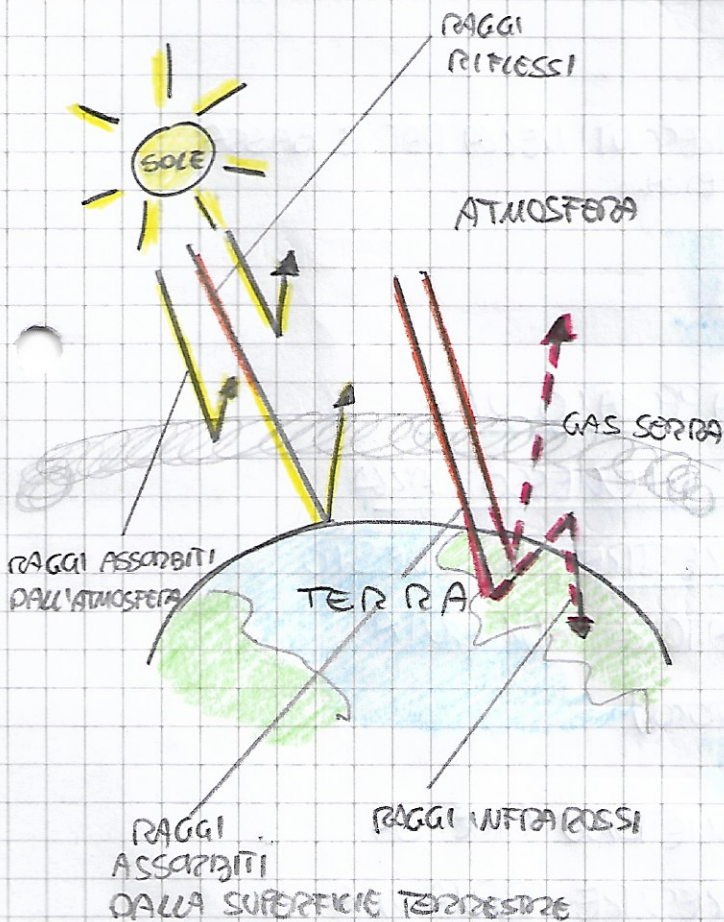 RAGGI
RIFLESSI
SOLE
ATMOSFERA
GAS SERRA
RAGGI ASSORBITI
DALL'ATMOSFERA
TERRA
RAGGI
ASSORBITI
DALLA SUPERFICIE TERRESTRE
RAGGI INFRAROSSI